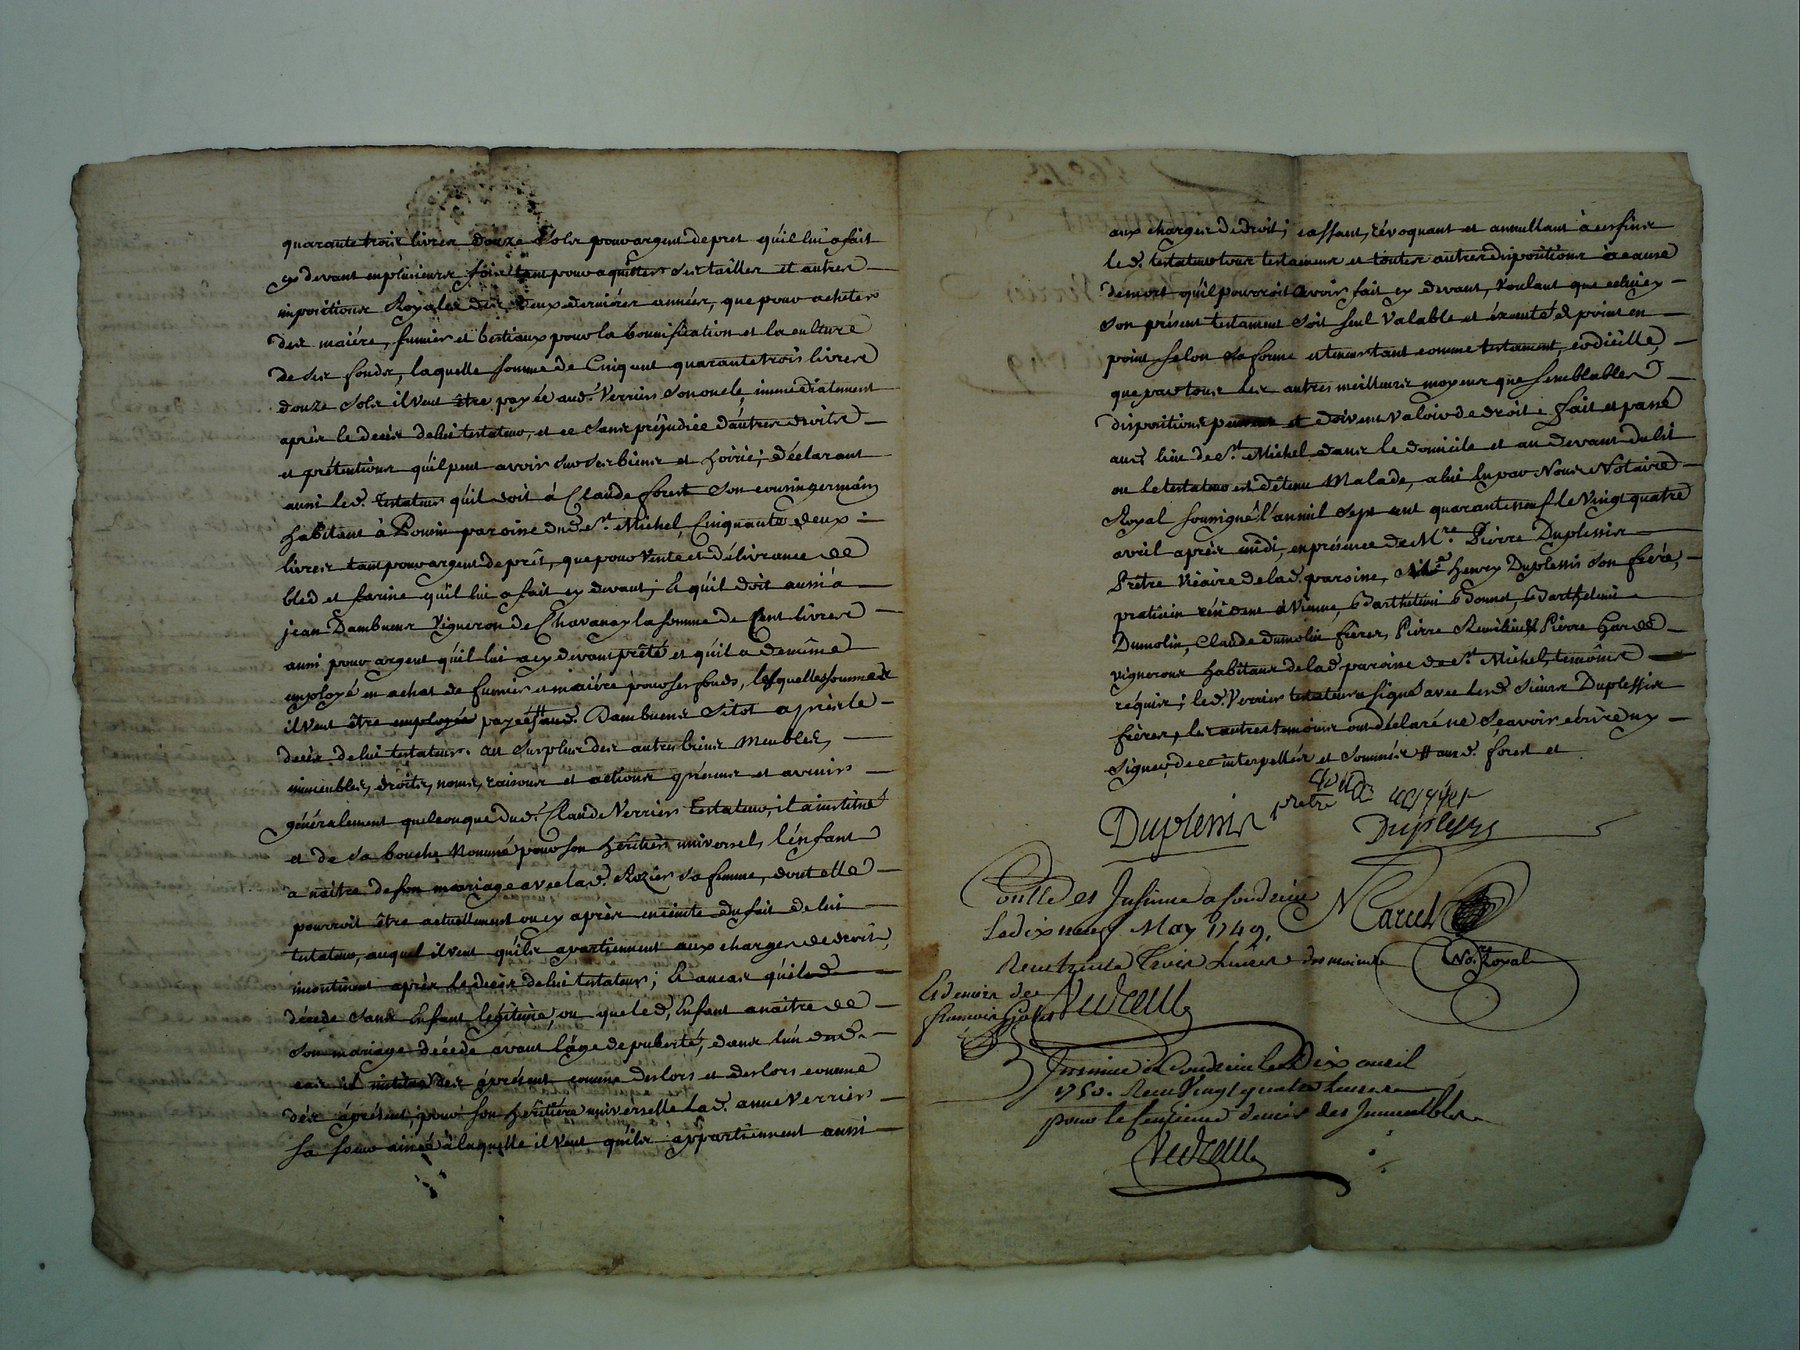 quarante trois livres douze sols pour argent de pret qu'il lui a fait
cy devant en plusieurs fois tant pour aquitter ses tailles et autres
impositions Royales des deux dernieres années, que pour acheter
des maiére, fumier et bestiaux pour la bonnification et la culture
de ses fonds, laquelle somme de Cinq cent quarante trois livres
douze sols il veut être payée aud. Verrier son oncle, immediatement
après le decès de lui testateur, et ce sans préjudice d'autres droits
et prétentions qu'il peut avoir sur ses biens et hoirie; déclarant
aussi led. testateur qu'il doit à Claude forest son cousin germain
habitant à paroisse dud. St. Michel, Cinquante deux
livres tant pour argent de prêt, que pour vente et délivrance de
bled et farine qu'il lui a fait cy devant; Et qu'il doit aussi a
jean Dambuent Vigneron de Chavanay la somme de Cent livres
aussi pour argent qu'il lui a cy devant prêté et qu'il a de même
employé en achat de fumier et maiére pour ses fonds, lesquelles sommes
il veut être employée payées # aud. Dambuent sitot après le
decès de lui testateur. au surplus des autres biens Meubles,
immeubles, droits, noms, raisons et actions présents et avenir
généralement quelconque dud. Claude Verrier Testateur, il a institué
et de sa bouche Nommé pour son héritier universel, l'énfant
a naître de son mariage avec lad. Rozier sa femme, dont elle
pourroit être actuellement ou cy après enceinte du fait de lui
testateur, auquel il veut qu'ils apartiennent aux charges de droit,
incontinent après le decès de lui testateur; Et au cas qu'il
décede sans Enfant legitime, ou que led. Enfant a naître de
son mariage décede avant l'âge de puberté, dans l'un desd.
cas il institue dès àprésent comme deslors et deslors comme
dès àprésent, pour son héritiére universelle lad. anne Verrier
sa soeur ainée à laquelle il veut qu'ils appartiennent aussi
aux charges de droit; cassant, révoquant et annullant à ces fins
led. testateur tous testamens et toutes autres dispositions à cause
de mort qu'il pourroit avoir fait cy devant, voulant que celui cy
son présent testament soit seul valable et éxecuté de point en
point selon sa forme et teneur tant comme testament, codicille,
que par tous les autres meilleurs moyens que semblables
dispositions peuvent et doivent valoir de droit. fait et passé
aud. lieu de St. Michel dans le domicile et au devant du lit
ou le testateur est détenu Malade, a lui lu par Nous Notaire
Royal soussigné l'an mil sept cent quarante neuf le Vingt quatre
avril après midi, en présence de Mre. Pierre Duplessis
Prêtre Vicaire de lad. paroisse, Henry Duplessis son frére,
praticien résident à Vienne, Barthelemi Bonnet, Barthelemi
Dumolin, Claude Dumolin fréres, Pierre et Pierre Garde
vignerons habitans de lad. paroisse de St. Michel, témoins
réquis; led. Verrier testateur a signé avec lesd. Sieurs Duplessis
fréres, les autres temoins ont déclaré ne sçavoir écrire ny
signer, de ce interpellés et sommés # aud. forest et
Duplessis prêtre
Duplessis
Contlé et Insinué a Condrieu
Le dix neuf May 1749.
Recu trente trois Livres
Marcel
No.re Royal
Insinué a Condrieu le Dix avril
1750. Recu Vingt quatre Livres
pour le Centieme denier des Immeubles